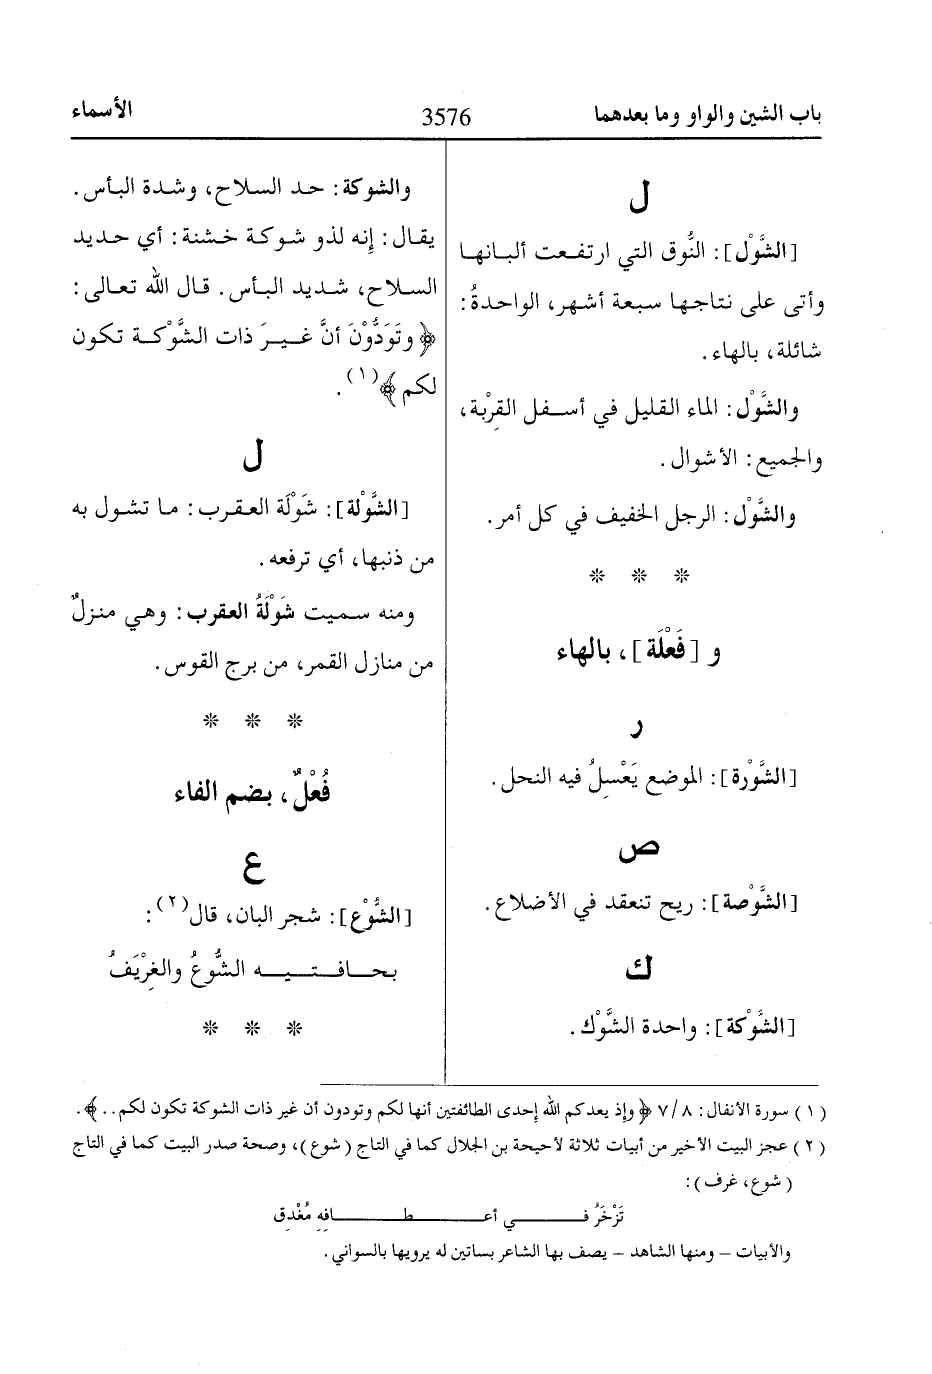 باب الشين والواو وما بعدهما 3576 الأسماء
ل
[الشَّوْل]: النُّوق التي ارتفعت ألبانها
وأتى على نتاجها سبعة أشهر، الواحدةُ:
شائلة، بالهاء.
والشَّوْل: الماء القليل في أسفل القرْبة،
والجميع: الأشوال.
والشَّوْل: الرجل الخفيف في كل أمر.
* * *
و [فَعْلَة]، بالهاء
ر
[الشَّوْرة]: الموضع يَعْسِلُ فيه النحل.
ص
[الشَّوْصة]: ريح تنعقد في الأضلاع.
ك
[الشَّوْكة]: واحدة الشَّوْك.
والشوكة: حد السلاح، وشدة البأس.
يقال: إنه لذو شوكة خشنة: أي حديد
السلاح، شديد البأس. قال الله تعالى:
﴿وتَوَدُّوْنَ أنَّ غيرَ ذات الشَّوْكة تكون
لكم﴾(١).
ل
[الشَّوْلة]: شَوْلَة العقرب: ما تشول به
من ذنبها، أي ترفعه.
ومنه سميت شَوْلَةُ العقرب: وهي منزلٌ
من منازل القمر، من برج القوس.
* * *
فُعْلٌ، بضم الفاء
ع
[الشُّوْع]: شجر البان، قال(٢):
بحافتيه الشُّوعُ والغِرْيَفُ
* * *
(١) سورة الأنفال: ٧/٨ ﴿وإذ يعدكم الله إحدى الطائفتين أنها لكم وتودون أن غير ذات الشوكة تكون لكم..﴾.
(٢) عجز البيت الأخير من أبيات ثلاثة لأحيحة بن الجلال كما في التاج (شوع)، وصحة صدر البيت كما في التاج
(شوع، غرف):
تَزْخَرُ في أعطافِهِ مُغْدِق
والأبيات – ومنها الشاهد – يصف بها الشاعر بساتين له يرويها بالسواني.